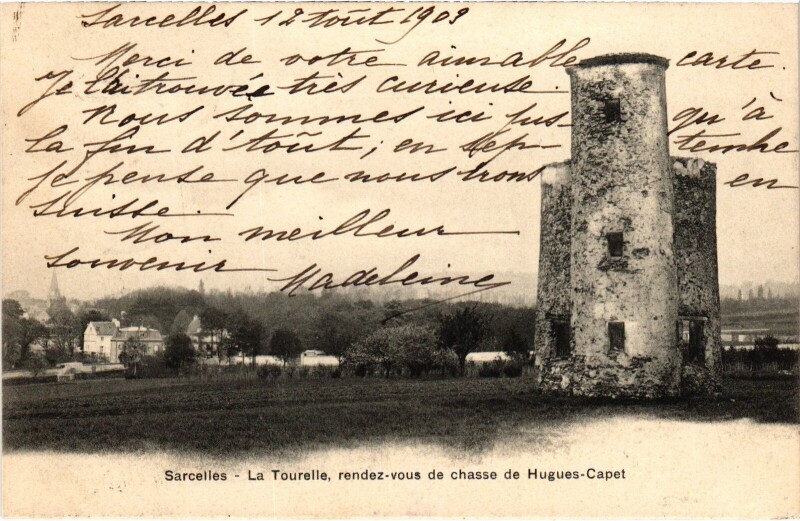 Sarcelles 12 toût 1903
Merci de votre aimable carte.
Je l'ai trouvée très curieuse.
Nous sommes ici jus qu'à
la fin d'toût; en sep tembre
je pense que nous irons en
Suisse.
Mon meilleur
souvenir Madeleine
Sarcelles - La Tourelle, rendez-vous de chasse de Hugues-Capet